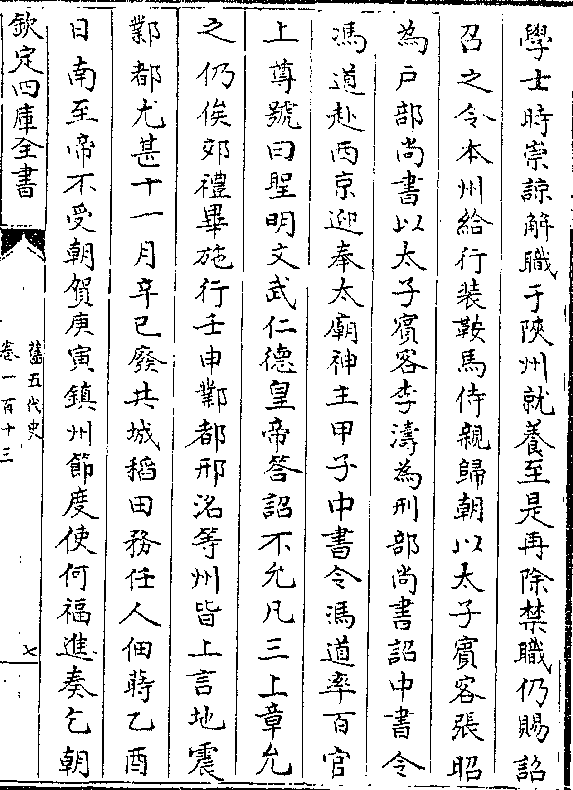 學士時崇諒解職于陜州就養至是再除禁職仍賜詔
召之令本州給行装鞍馬侍親歸朝以太子賓客張昭
為戸部尚書以太子賓客李濤為刑部尚書詔中書令
馮道赴西京迎奉太廟神主甲子中書令馮道率百官
上尊號曰聖明文武仁德皇帝答詔不允凡三上章允
之仍俟郊禮畢施行壬申鄴都邢洺等州皆上言地震
鄴都尤甚十一月辛巳廢共城稻田務任人佃蒔乙酉
日南至帝不受朝賀庚寅鎮州節度使何福進奏乞朝
欽定四庫全書
舊五代史
卷一百十三
七